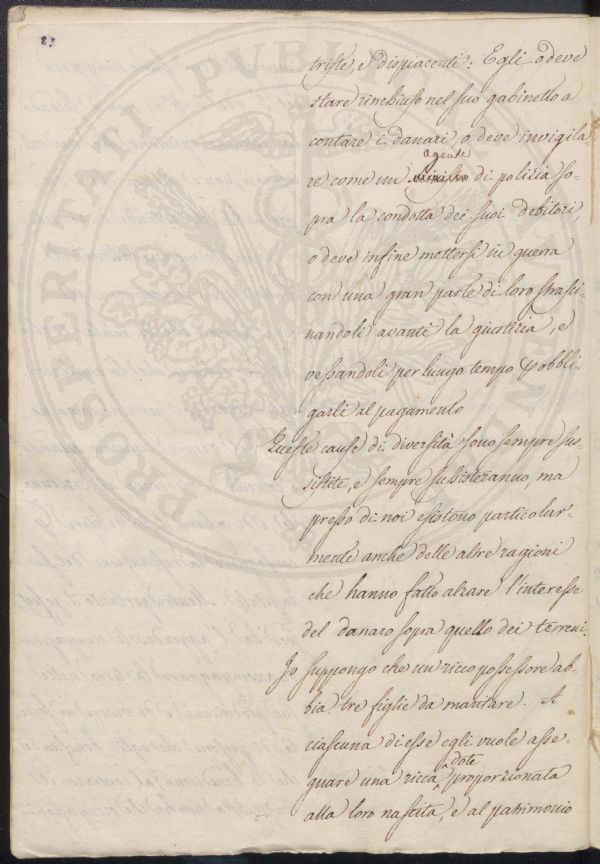 23
triste, e dispiacenti: Egli o deve
stare rinchiuso nel suo gabinetto a
contare i danari, o deve invigila
agente
re come un di polizia so-
pra la condotta dei suoi debitori,
o deve infine mettersi in guerra
con una gran parte di loro strasci-
nandoli avanti la giustizia, e
vessandoli per lungo tempo p obbli-
garli al pagamento
Queste cause di diversità sono sempre sus-
sistite, e sempre sussisteranno, ma
presso di noi esistono particolar-
mente anche delle altre ragioni
che hanno fatto alzare l'interesse
del danaro sopra quello dei terreni.
Io suppongo che un ricco possessore ab-
bia tre figlie da maritare. A
ciascuna di esse egli vuole asse-
dote
gnare una ricca ^ proporzionata
alla loro nascita, e al patrimonio
PROSPERITATI PUBL